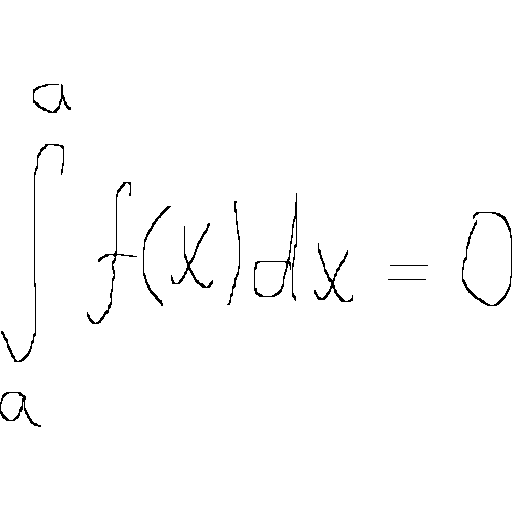 \int_{a}^{a} f(x)dx = 0